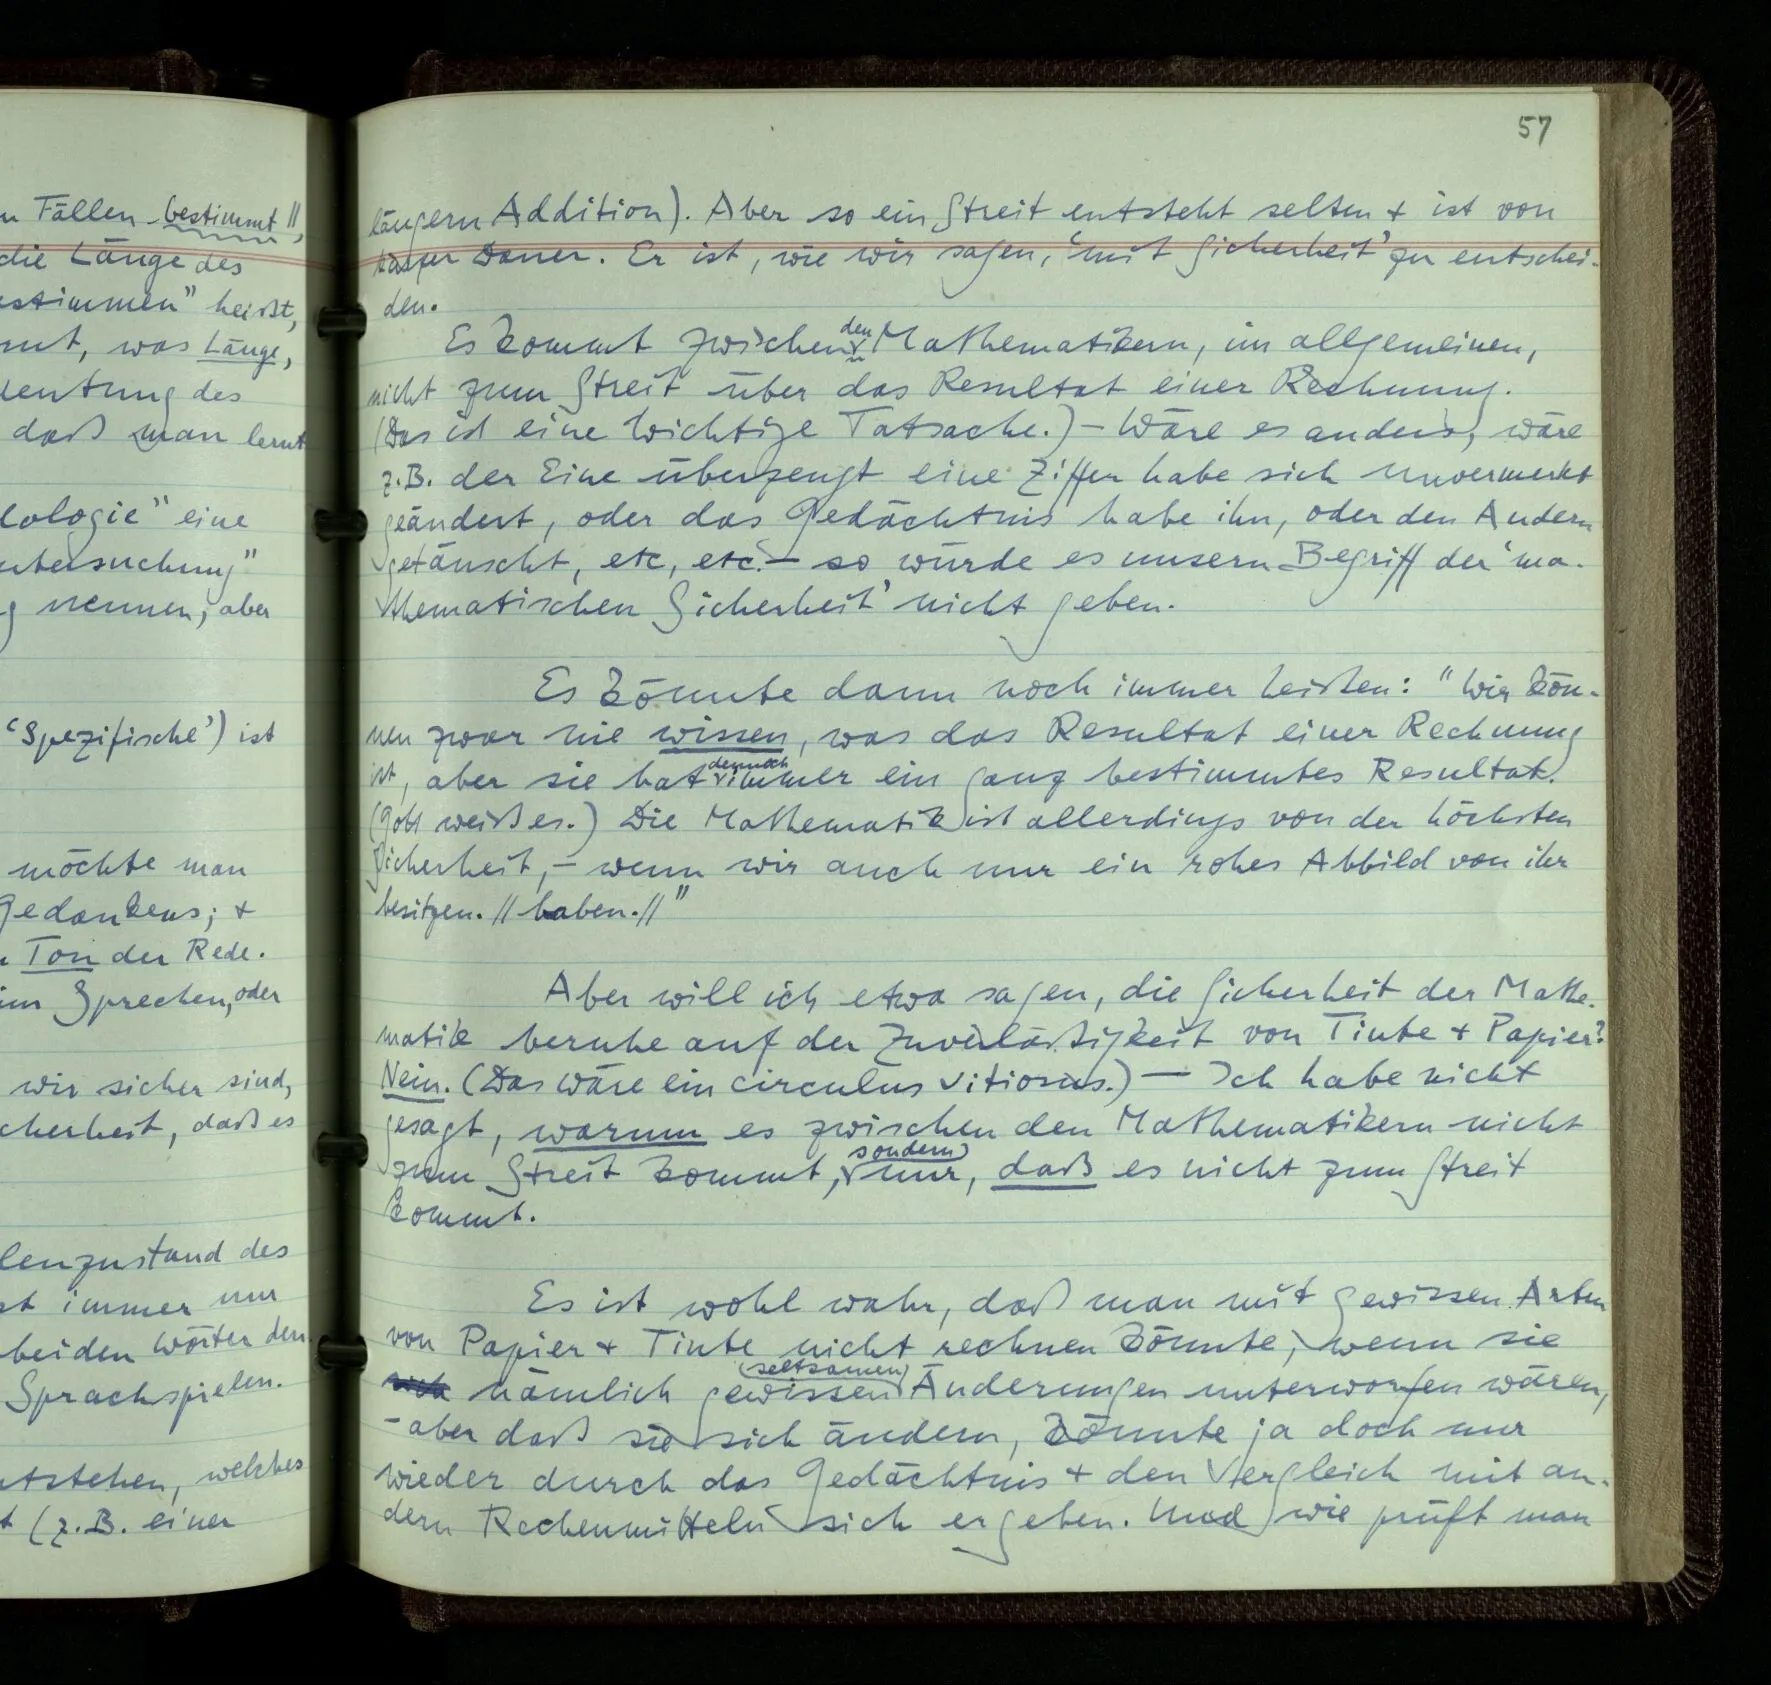 n Fällen bestimmt //,
die Länge des
estimmen" heißt,
mt, was Länge,
deutung des
daß man lernt
dologie" eine
ntersuchung"
g nennen, aber
'Spezifische') ist
möchte man
Gedankens; +
Ton der Rede.
im Sprechen, oder
wir sicher sind,
cherheit, daß es
lenzustand des
st immer nur
beiden Wörter den
Sprachspielen.
ntstehen, welches
t (z.B. einer
57
längern Addition). Aber so ein Streit entsteht selten + ist von
kurzer Dauer. Er ist, wie wir sagen, 'mit Sicherheit' zu entschei-
den.
Es kommt zwischen den Mathematikern, im allgemeinen,
nicht zum Streit über das Resultat einer Rechnung.
(Das ist eine wichtige Tatsache.) – Wäre es anders, wäre
z.B. der Eine überzeugt eine Ziffer habe sich unvermerkt
geändert, oder das Gedächtnis habe ihn, oder den Andern
getäuscht, etc, etc. – so würde es unsern Begriff der 'ma-
thematischen Sicherheit' nicht geben.
Es könnte dann noch immer heißen: "Wir kön-
nen zwar nie wissen, was das Resultat einer Rechnung
ist, aber sie hat dennoch immer ein ganz bestimmtes Resultat.
(Gott weiß es.) Die Mathematik ist allerdings von der höchsten
Sicherheit, – wenn wir auch nur ein rohes Abbild von ihr
besitzen. // haben. //"
Aber will ich etwa sagen, die Sicherheit der Mathe-
matik beruhe auf der Zuverläßigkeit von Tinte + Papier?
Nein. (Das wäre ein circulus vitiosus.) – Ich habe nicht
gesagt, warum es zwischen den Mathematikern nicht
zum Streit kommt, sondern nur, daß es nicht zum Streit
kommt.
Es ist wohl wahr, daß man mit gewissen Arten
von Papier + Tinte nicht rechnen könnte, wenn sie
nämlich gewissen (seltsamen) Änderungen unterworfen wären,
– aber daß sie sich ändern, könnte ja doch nur
wieder durch das Gedächtnis + den Vergleich mit an-
dern Rechenmitteln sich ergeben. Und wie prüft man